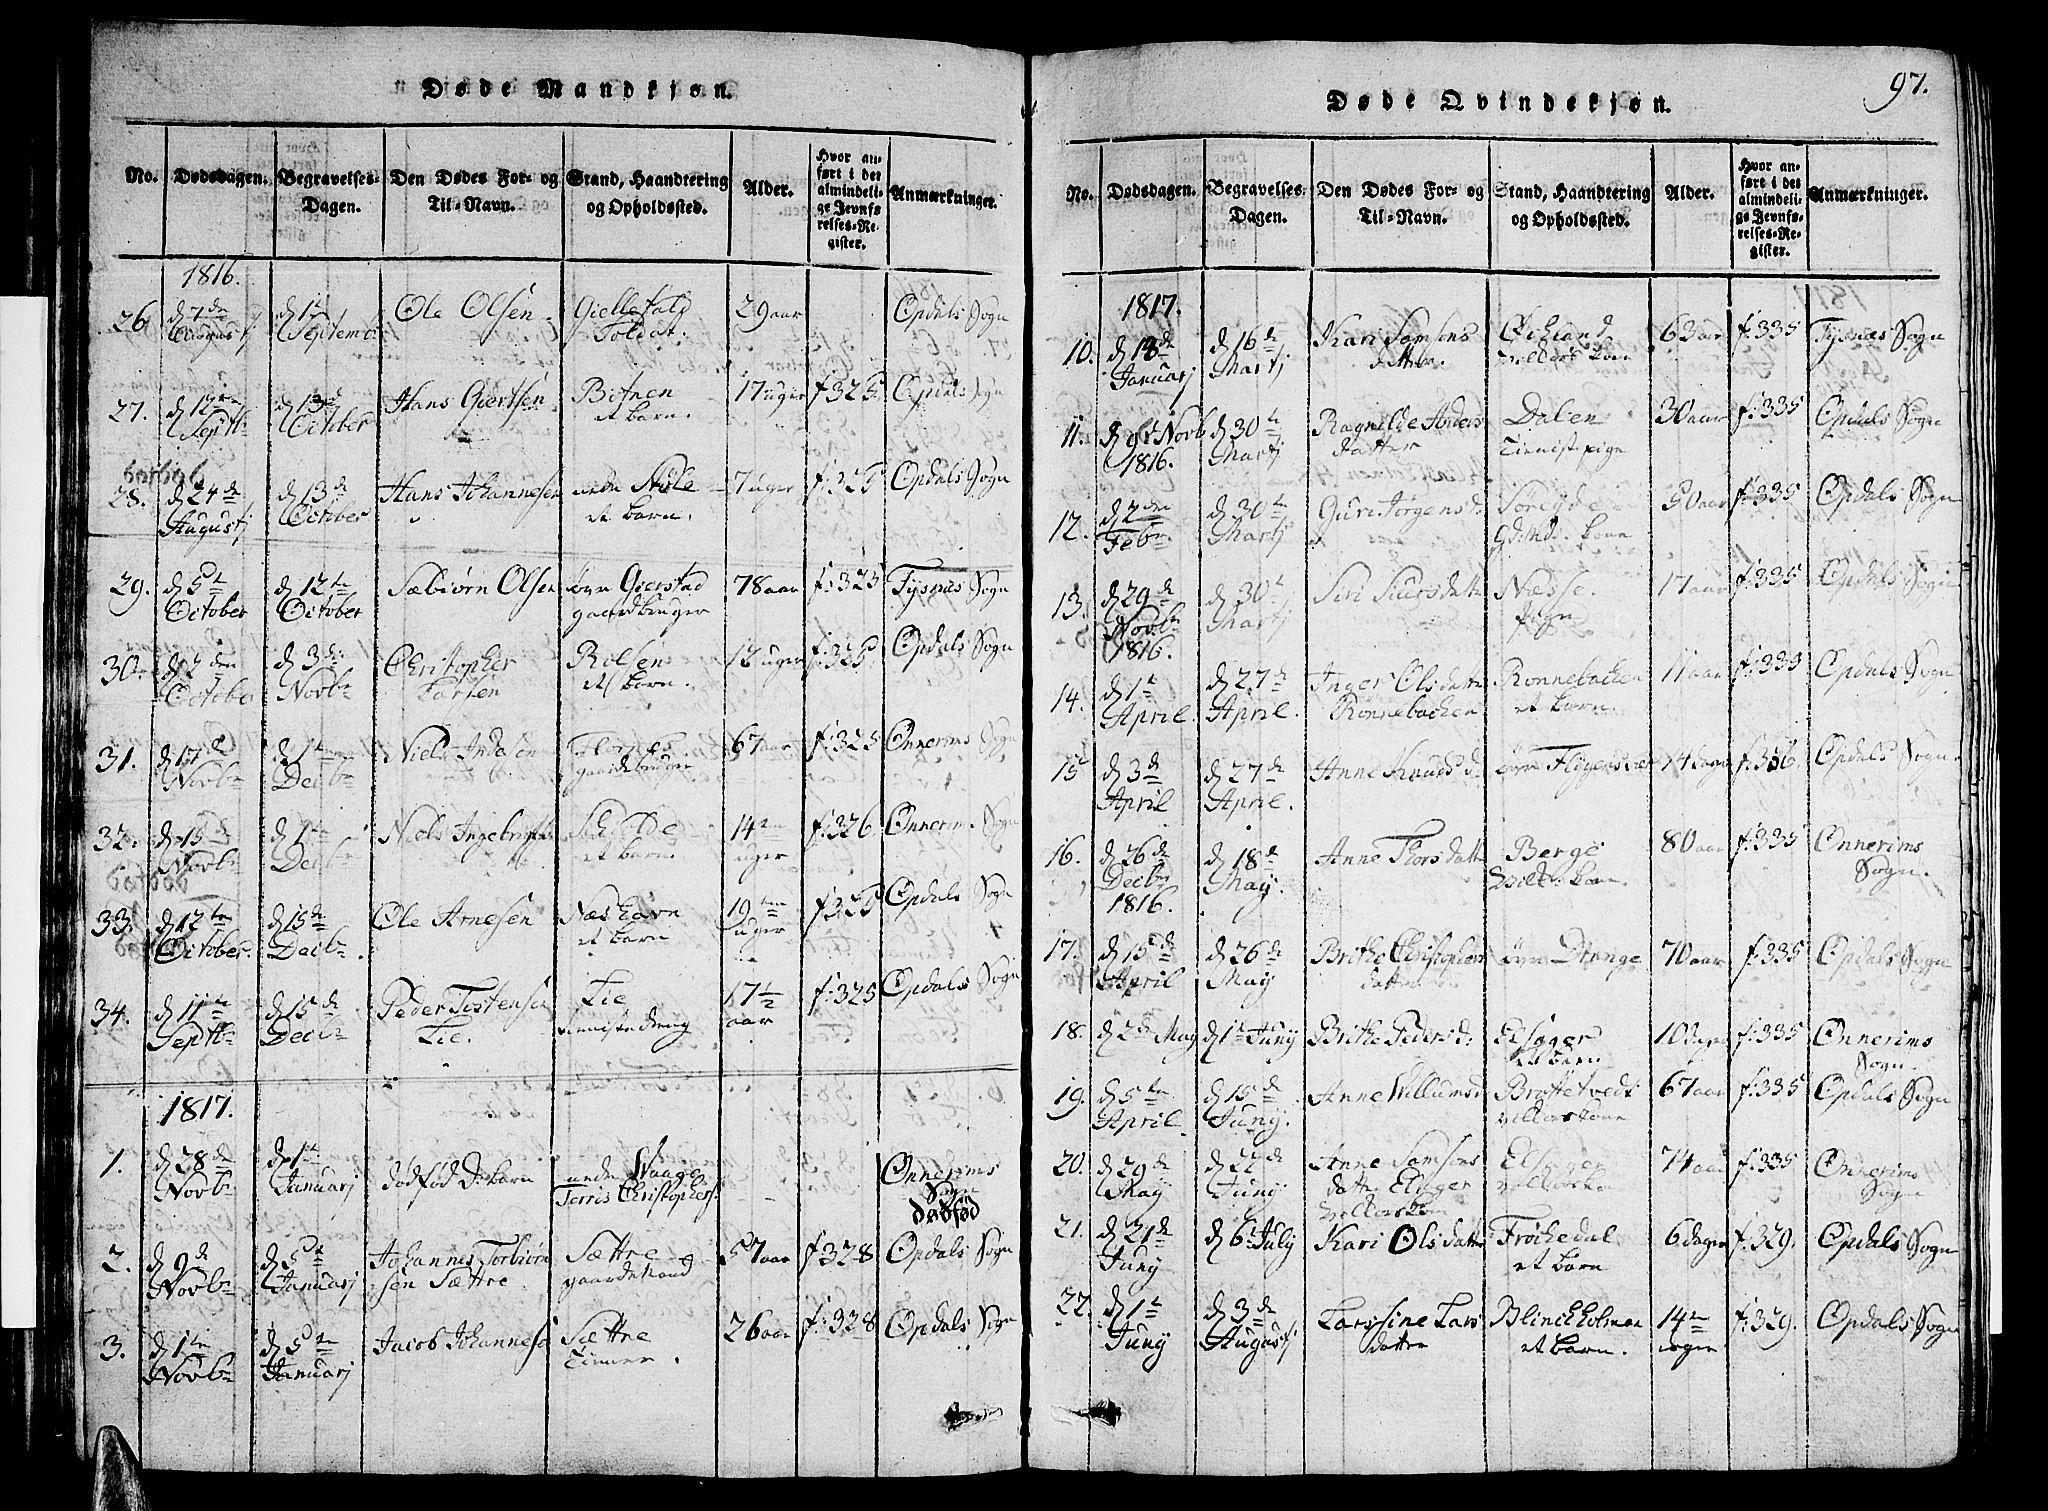 Døde Mandkjøn.
No. Dødsdagen. Begravelses-Dagen. Den Dødes For- og Til-Navn. Stand, Haandtering og Opholdssted. Alder. Hvor anført i det almindelige Jevnførelses-Register. Anmærkninger.
1816.
26. d 7de Augustj d 1te Septemb. Ole Olsen. Gjellefald Soldat. 29 aar Opdals Sogn
27. d 12te Septb. d 13de October Hans Giertsen Bitnen et barn. 17 uger f: 325 Opdals Sogn
28. d 24de Augustj d 13de October Hans Johannesen nedr et barn. 7 uger f: 325 Opdals Sogn
29. d 5te October d 12te October Sæbiørn Olsen øvr Gierstad gaardbruger 78 aar f: 325 Tysnæs Sogn
30. d 2den October d 3die Novbr Christopher Larsen Rolsen et barn. 12 uger f: 325 Opdals Sogn
31. d 17de Novbr d 1te Decbr Niels gaardbruger 67 aar f: 325 Onnerims Sogn
32. d 15de Novbr d 1te Decbr Niels Ingebrigts. et barn. 14ten uger f: 326 Onnerims Sogn
33. d 12te October. d 15de Decbr. Ole Arnesen Næshavn et barn 19ten uger f: 325 Opdals Sogn
34. d 11te Septbr d 15de Decbr Peder Tostensen Lie. Lie tienistedreng 17 1/2 aar f: 325 Opdals Sogn
1817.
1. d 28de Novbr d 1te Januarj dødfød D: barn nedr Waage Terris Christophers. Onnerims Sogn dødfød
2. d 9de Novbr d 5te Januarj Johannes Torbiørnsen Sættre. Sættre gaardmand 57 aar f: 328 Opdals Sogn
3. d 1te Novbr d 5te Januarj Jacob Johannesen Sættre Tienner. 26 aar f: 328 Opdals Sogn
97.
Døde Qvindekjøn.
No. Dødsdagen. Begravelses-Dagen. Den Dødes For- og Til-Navn. Stand, Haandtering og Opholdssted. Alder. Hvor anført i det almindelige Jevnførelses-Register. Anmærkninger.
1817.
10. d 13de Januarj d 16de Martj Kari Samsons datter kone 63 aar f: 335 Tysnæs Sogn
11. d 9de Novb 1816. d 30te Martj Ragnilde Anders datter Dalen Tienistpige 30 aar f: 335 Opdals Sogn
12. d 2den Febr. d 30te Martj Guri Jørgensd. Søreyde Gdmd. kone 30 aar f: 335 Opdals Sogn
13. d 29de Novbr 1816. d 30te Martj Siri Siursdatter Næsse. pige 17 aar f: 335 Opdals Sogn
14. d 1te April. d 27de April. Inger Olsdatter Rønnebacken Rønnebacken et barn. 11 aar f: 335 Opdals Sogn
15 d 3de April d 27de April. Anne Knuds d. øvre 14 dage f: 336. Opdals Sogn.
16. d 26de Decbr 1816. d 18de May. Anne Thorsdatter Berge kone. 80 aar f: 335 Onnerims Sogn.
17. d 15de April d 26de May Brithe Christophers datter øvre Drange 70 aar f: 335 Opdals Sogn
18. d 2d May d 1te Juny Brithe Peders d: Elsager et barn 10 f: 335 Onnerims Sogn.
19. d 5te April d 15de Juny. Anne Willumsd. Brottetvedt kone 67 aar f: 335 Opdals Sogn
20. d 29de May d 22de Juny Anne Samsons datter Elsager kone Elsager 74 aar f: 335 Onnerims Sogn
21. d 21de Juny d 6te July Kari Olsdatter Frøchedal et barn 6 dager f: 329. Opdals Sogn
22. d 1te Juny d 3de Augustj Larsine Lars datter Blinckholmen et barn. 14ten uger f: 329. Opdals Sogn